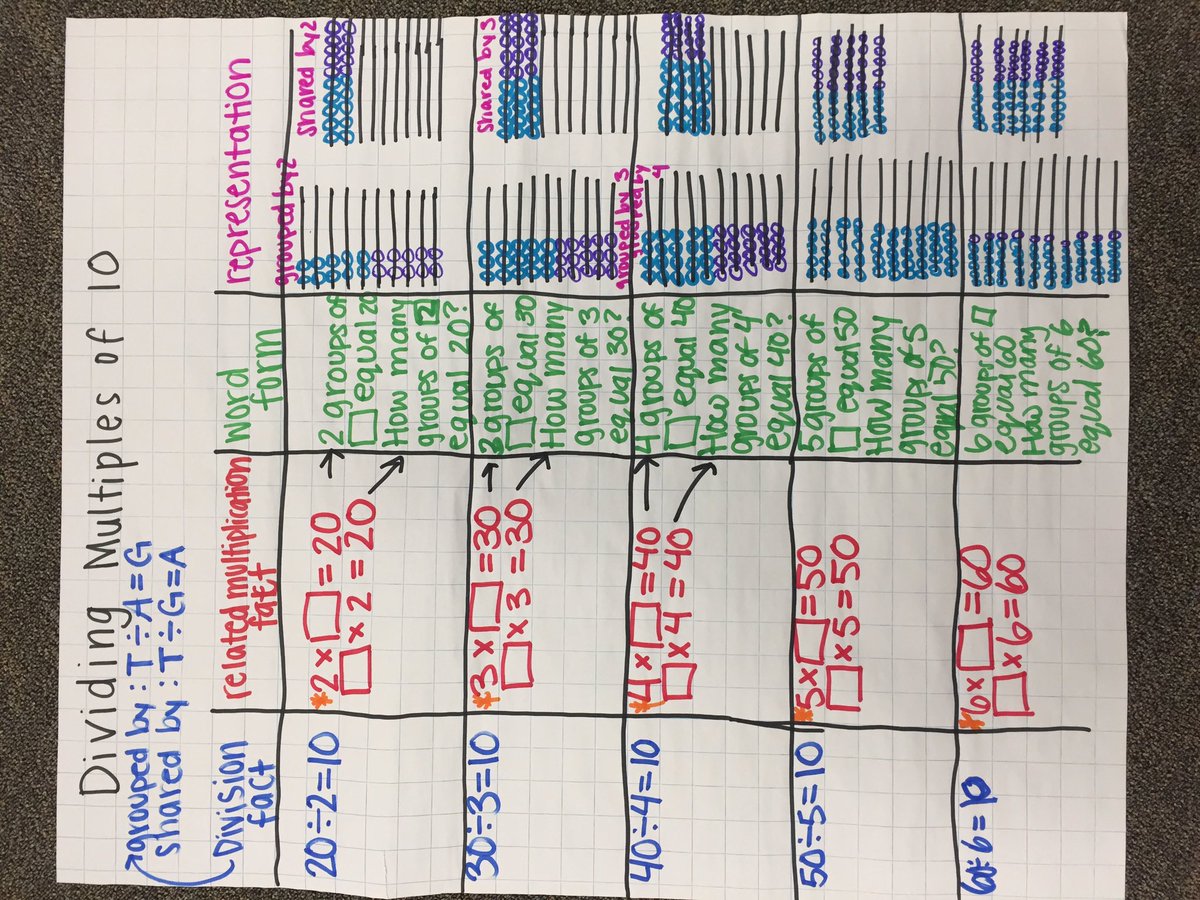 Dividing Multiples of 10
grouped by : T÷A=G
shared by : T÷G=A
Division fact
related multiplication fact
word form
representation
20÷2=10
*2×□=20
□×2=20
2 groups of
□ equal 20
How many
groups of 2
equal 20?
grouped by 2
shared by 2
30÷3=10
*3×□=30
□×3=30
3 groups of
□ equal 30
How many
groups of 3
equal 30?
grouped by 3
shared by 3
40÷4=10
*4×□=40
□×4=40
4 groups of
□ equal 40
How many
groups of 4
equal 40?
grouped by 4
50÷5=10
*5×□=50
□×5=50
5 groups of
□ equal 50
How many
groups of 5
equal 50?
60÷6=10
*6×□=60
□×6=60
6 groups of □
equal 60
How many
groups of 6
equal 60?